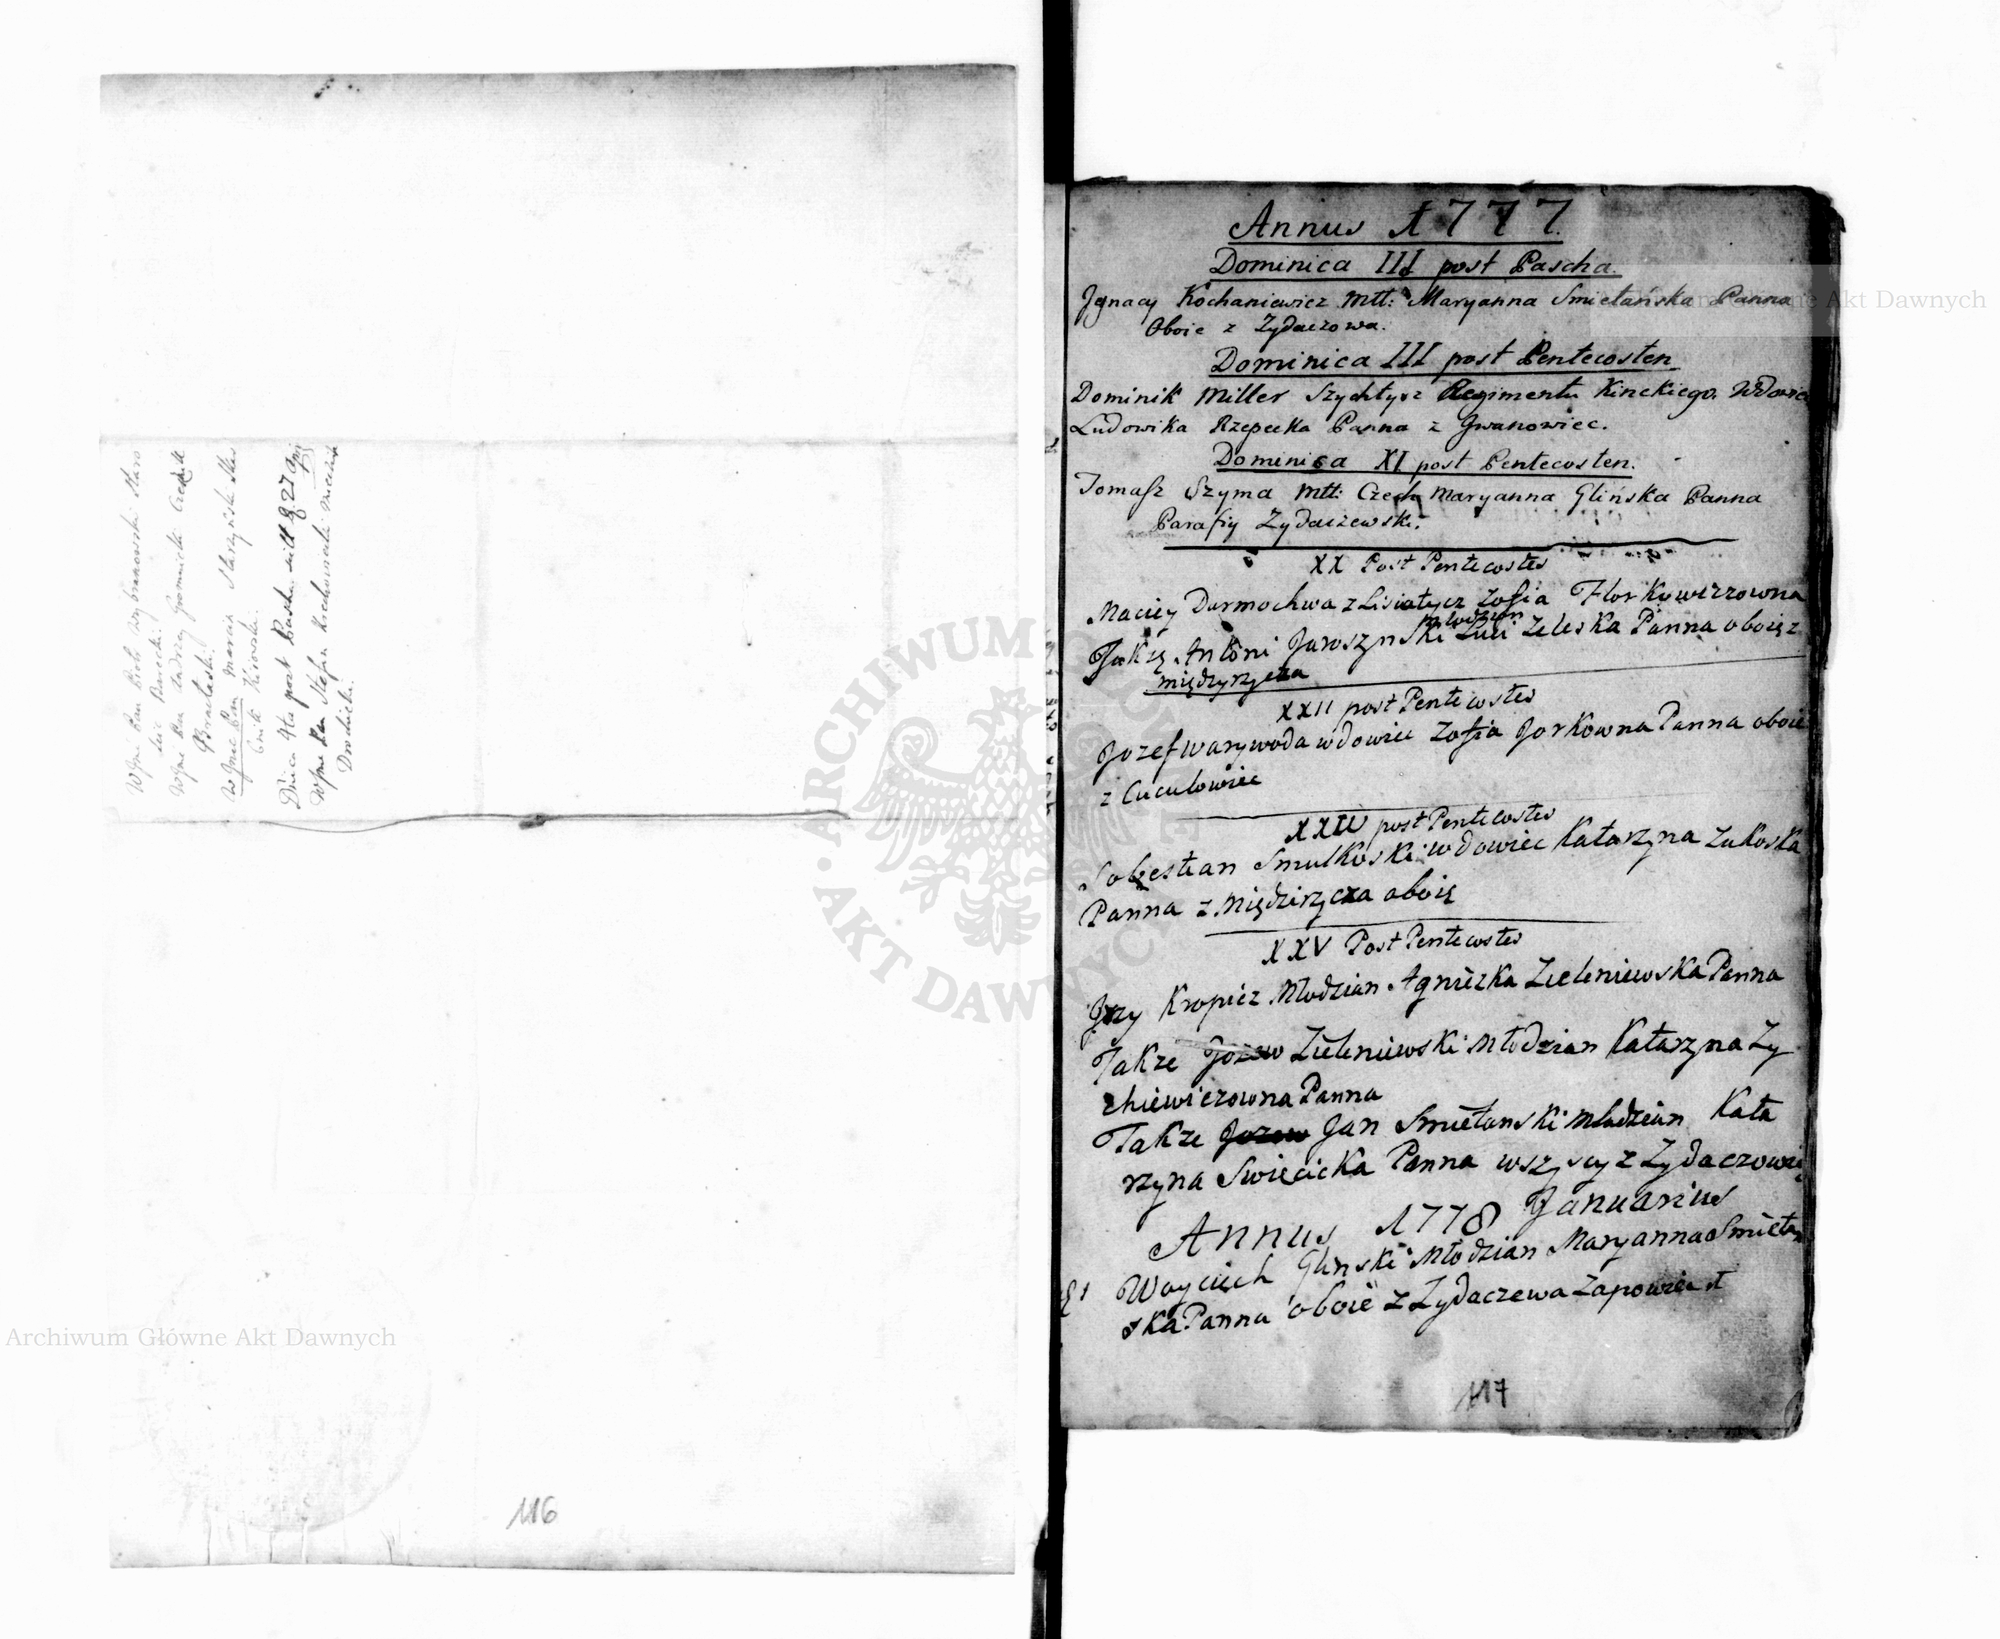 WJmc Pan Piotr Wybranowski Staro
WJmc Pan Andrzey Gromnicki Cześnik
Bracławski.
WJmc Pan Marcin Starzyński Skar
bnik Kiiowski.
Dnica 4ta post Pascha
WJmc Pan Stefan
116
Annus 1777.
Dominica III post Pascha.
Jgnacy Kochaniewicz Mtt: Maryanna Smietańska Panna
Oboie z Zydaczowa.
Dominica III post Pentecosten
Dominik Miller Szychtysz Regimentu Kinckiego. Wdowiec
Ludowika Rzepecka Panna z Jwanowiec.
Dominica XI post Pentecosten.
Tomasz Szyma Mtt: Czech Maryanna Glińska Panna
Parafiy Zydaczewski.
XX Post Pentecostes
Maciey Darmochwa z Lisiatycz Zofia Florkowiczowna
młodzian
Jakzę Antoni Jaroszynski Luci Zeleska Panna oboię z
międzyrzycza
XXII post Pentecostes
Jozef warywoda wdowiec Zofia Jorkowna Panna oboie
z Cuculowiec
XXIV post Pentecostes
Sobestian Smulkoski wdowiec Katarzyna Zukoska
Panna z Międzirzycza oboię
XXV Post Pentecostes
Jrzy Kropicz Młodzian Agnieżka Zieleniewska Panna
Takze Jozew Zieleniewski Młodzian Katarzyna Zy
chiewiczowna Panna
Takze Jozew Jan Smietanski Mladzian Kata
rzyna Swięcicka Panna wszyscy z Zydaczowa
Annus 1778 Januarius
Woyciech Glinski Młodzian Maryanna Smietan
ska Panna oboie z Zydaczewa Zapowied 1
117
ARCHIWUM GŁÓWNE AKT DAWNYCH
Archiwum Główne Akt Dawnych
Archiwum Główne Akt Dawnych